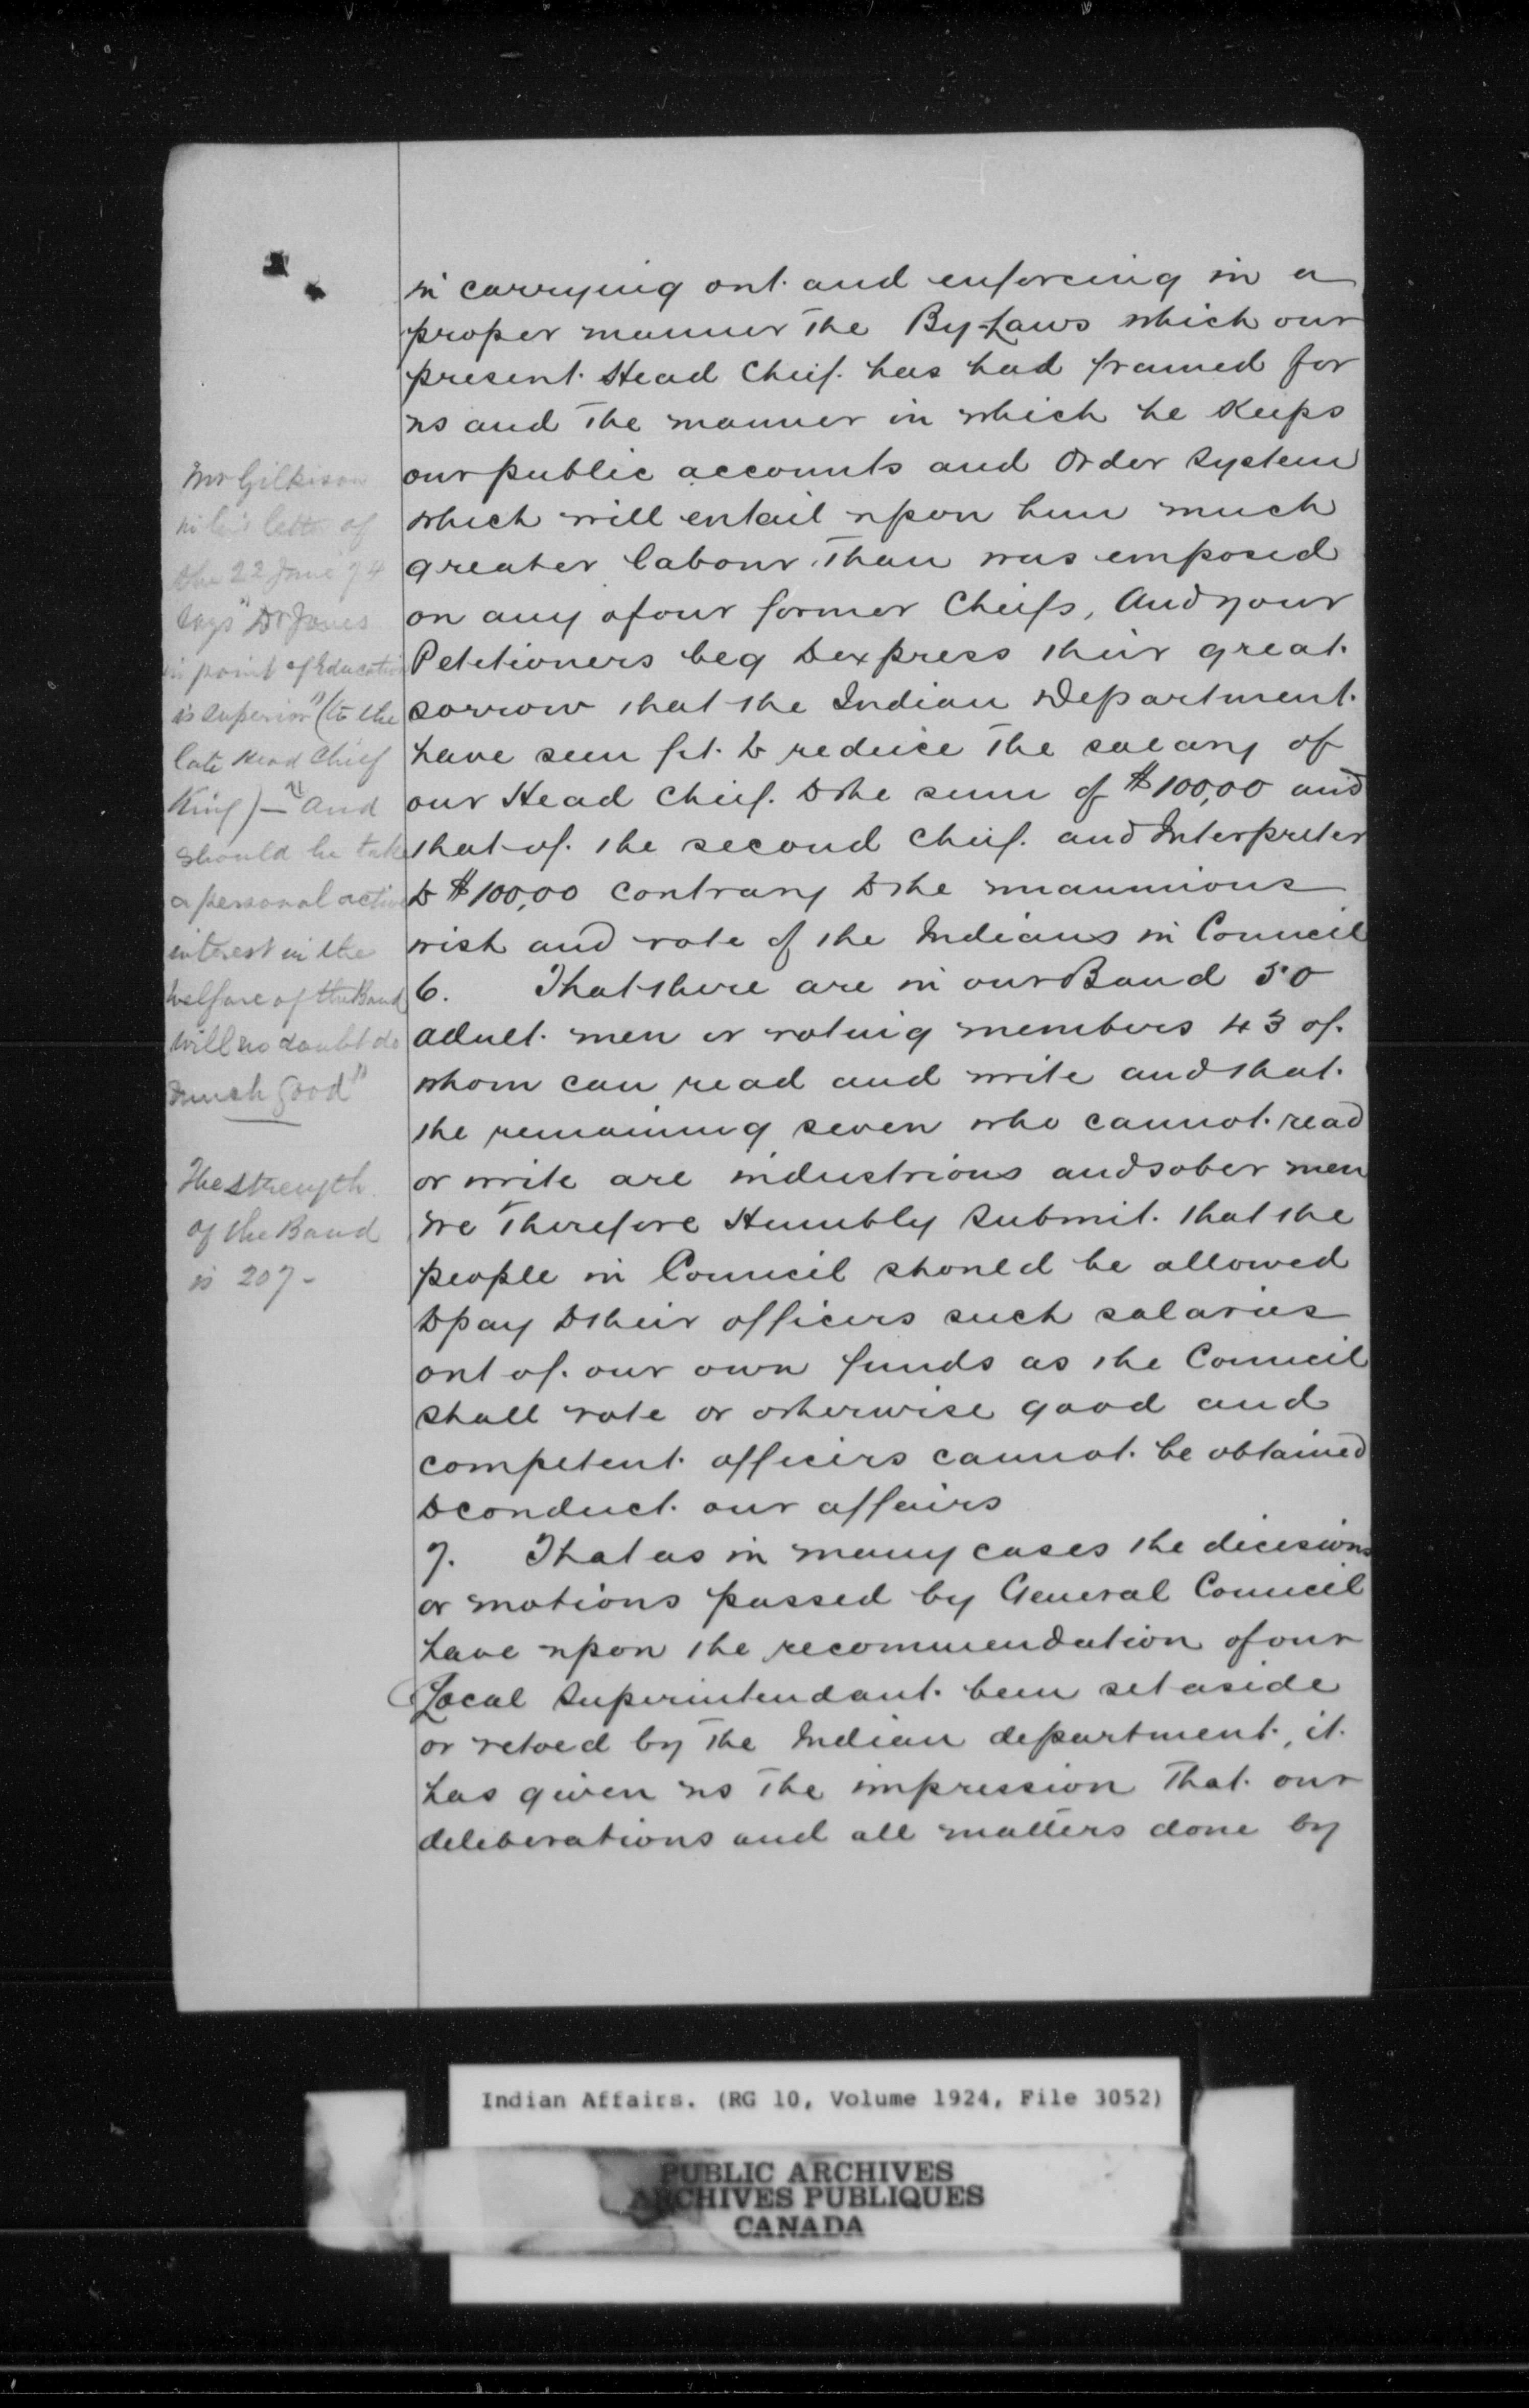 Mr Gilkison
in his letter of
the 22 June 74
says "Dr Jones
in point of Education
is superior" (to the
late Head Chief
King) — "and
should he take
a personal active
interest in the
welfare of the Band
will no doubt do
much good"
The strength
of the Band
is 207 -
in carrying out and enforcing in a
proper manner the By-Laws which our
present Head Cheif has had framed for
us and the manner in which he Keeps
our public accounts and Order System
which will entail upon him much
greater labour than was emposed
on any of our former Cheifs, And your
Petetioners beg to express their great
sorrow that the Indian Department
have seen fit to reduce the salary of
our Head Cheif to the sum of $100,00 and
that of the second Cheif and Interpreter
to $100,00 contrary to the unanimous
wish and vote of the Indians in Council
6. That there are in our Band 50
adult men or voting members 43 of
whom can read and write and that
the remaining seven who cannot read
or write are industrious and sober men
we Therefore Humbly Submit that the
people in Council should be allowed
to pay to their officers such salaries
out of our own funds as the Council
shall vote or otherwise good and
competent officers cannot be obtained
to conduct our affairs
7. That as in many cases the dicisions
or motions passed by General Council
have upon the recommendation of our
Local Superintendant been set aside
or vetoed by the Indian department, it
has given us the impression that our
deleberations and all matters done by
Indian Affairs. (RG 10, Volume 1924, File 3052)
PUBLIC ARCHIVES
ARCHIVES PUBLIQUES
CANADA